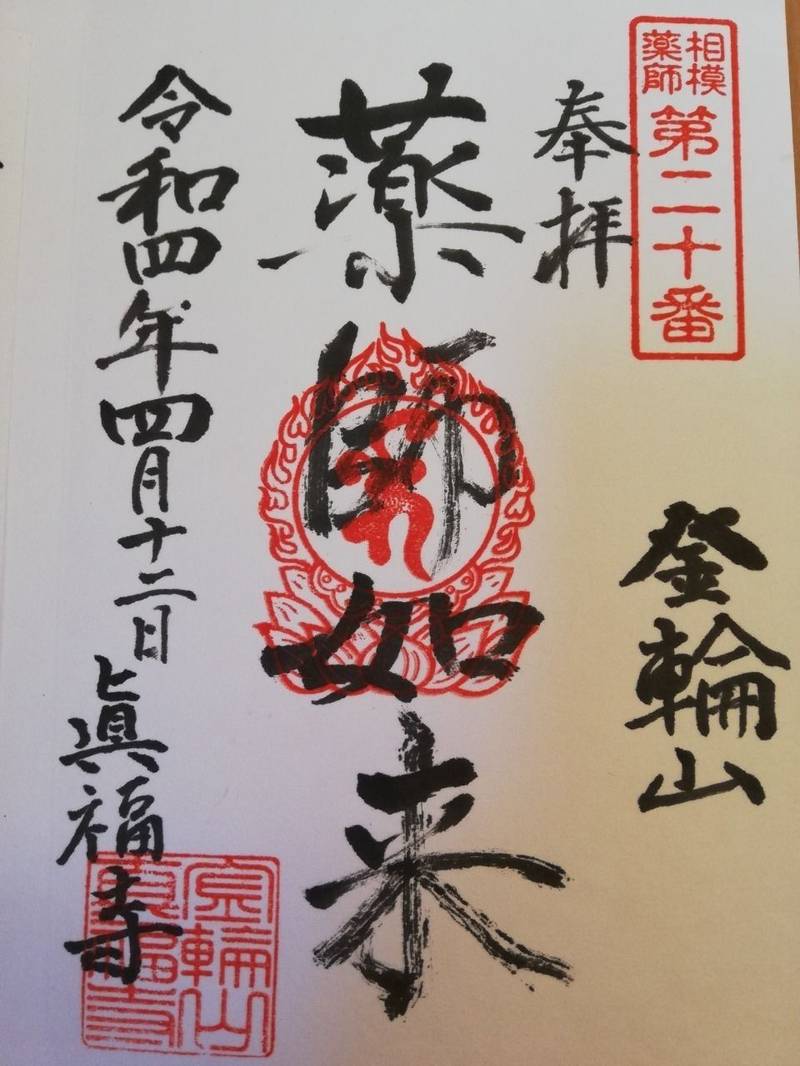 相模
薬師
第二十番
金輪山
奉拝
薬師如来
令和四年四月十二日
眞福寺
金輪山
眞福寺